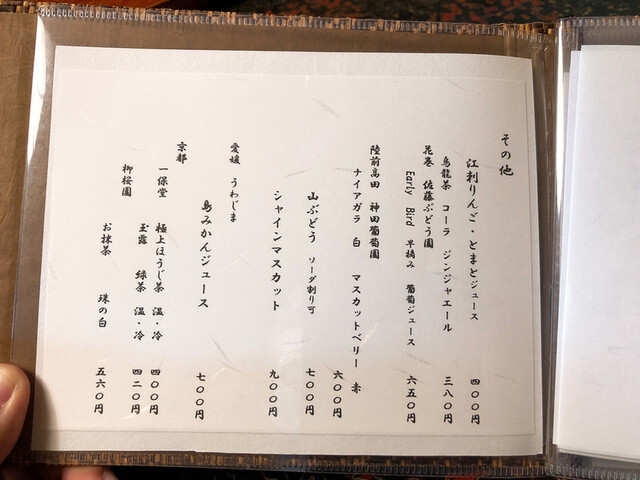 その他
江刺りんご・とまとジュース 四〇〇円
烏龍茶 コーラ ジンジャエール 三八〇円
花巻 佐藤ぶどう園
Early Bird 早摘み 葡萄ジュース 六五〇円
陸前高田 神田葡萄園
ナイアガラ 白 マスカットベリー 赤 六〇〇円
山ぶどう ソーダ割り可 七〇〇円
シャインマスカット 九〇〇円
愛媛 うわじま
島みかんジュース 七〇〇円
京都
一保堂 極上ほうじ茶 温・冷 四〇〇円
玉露 緑茶 温・冷 四二〇円
柳桜園
お抹茶 珠の白 五六〇円